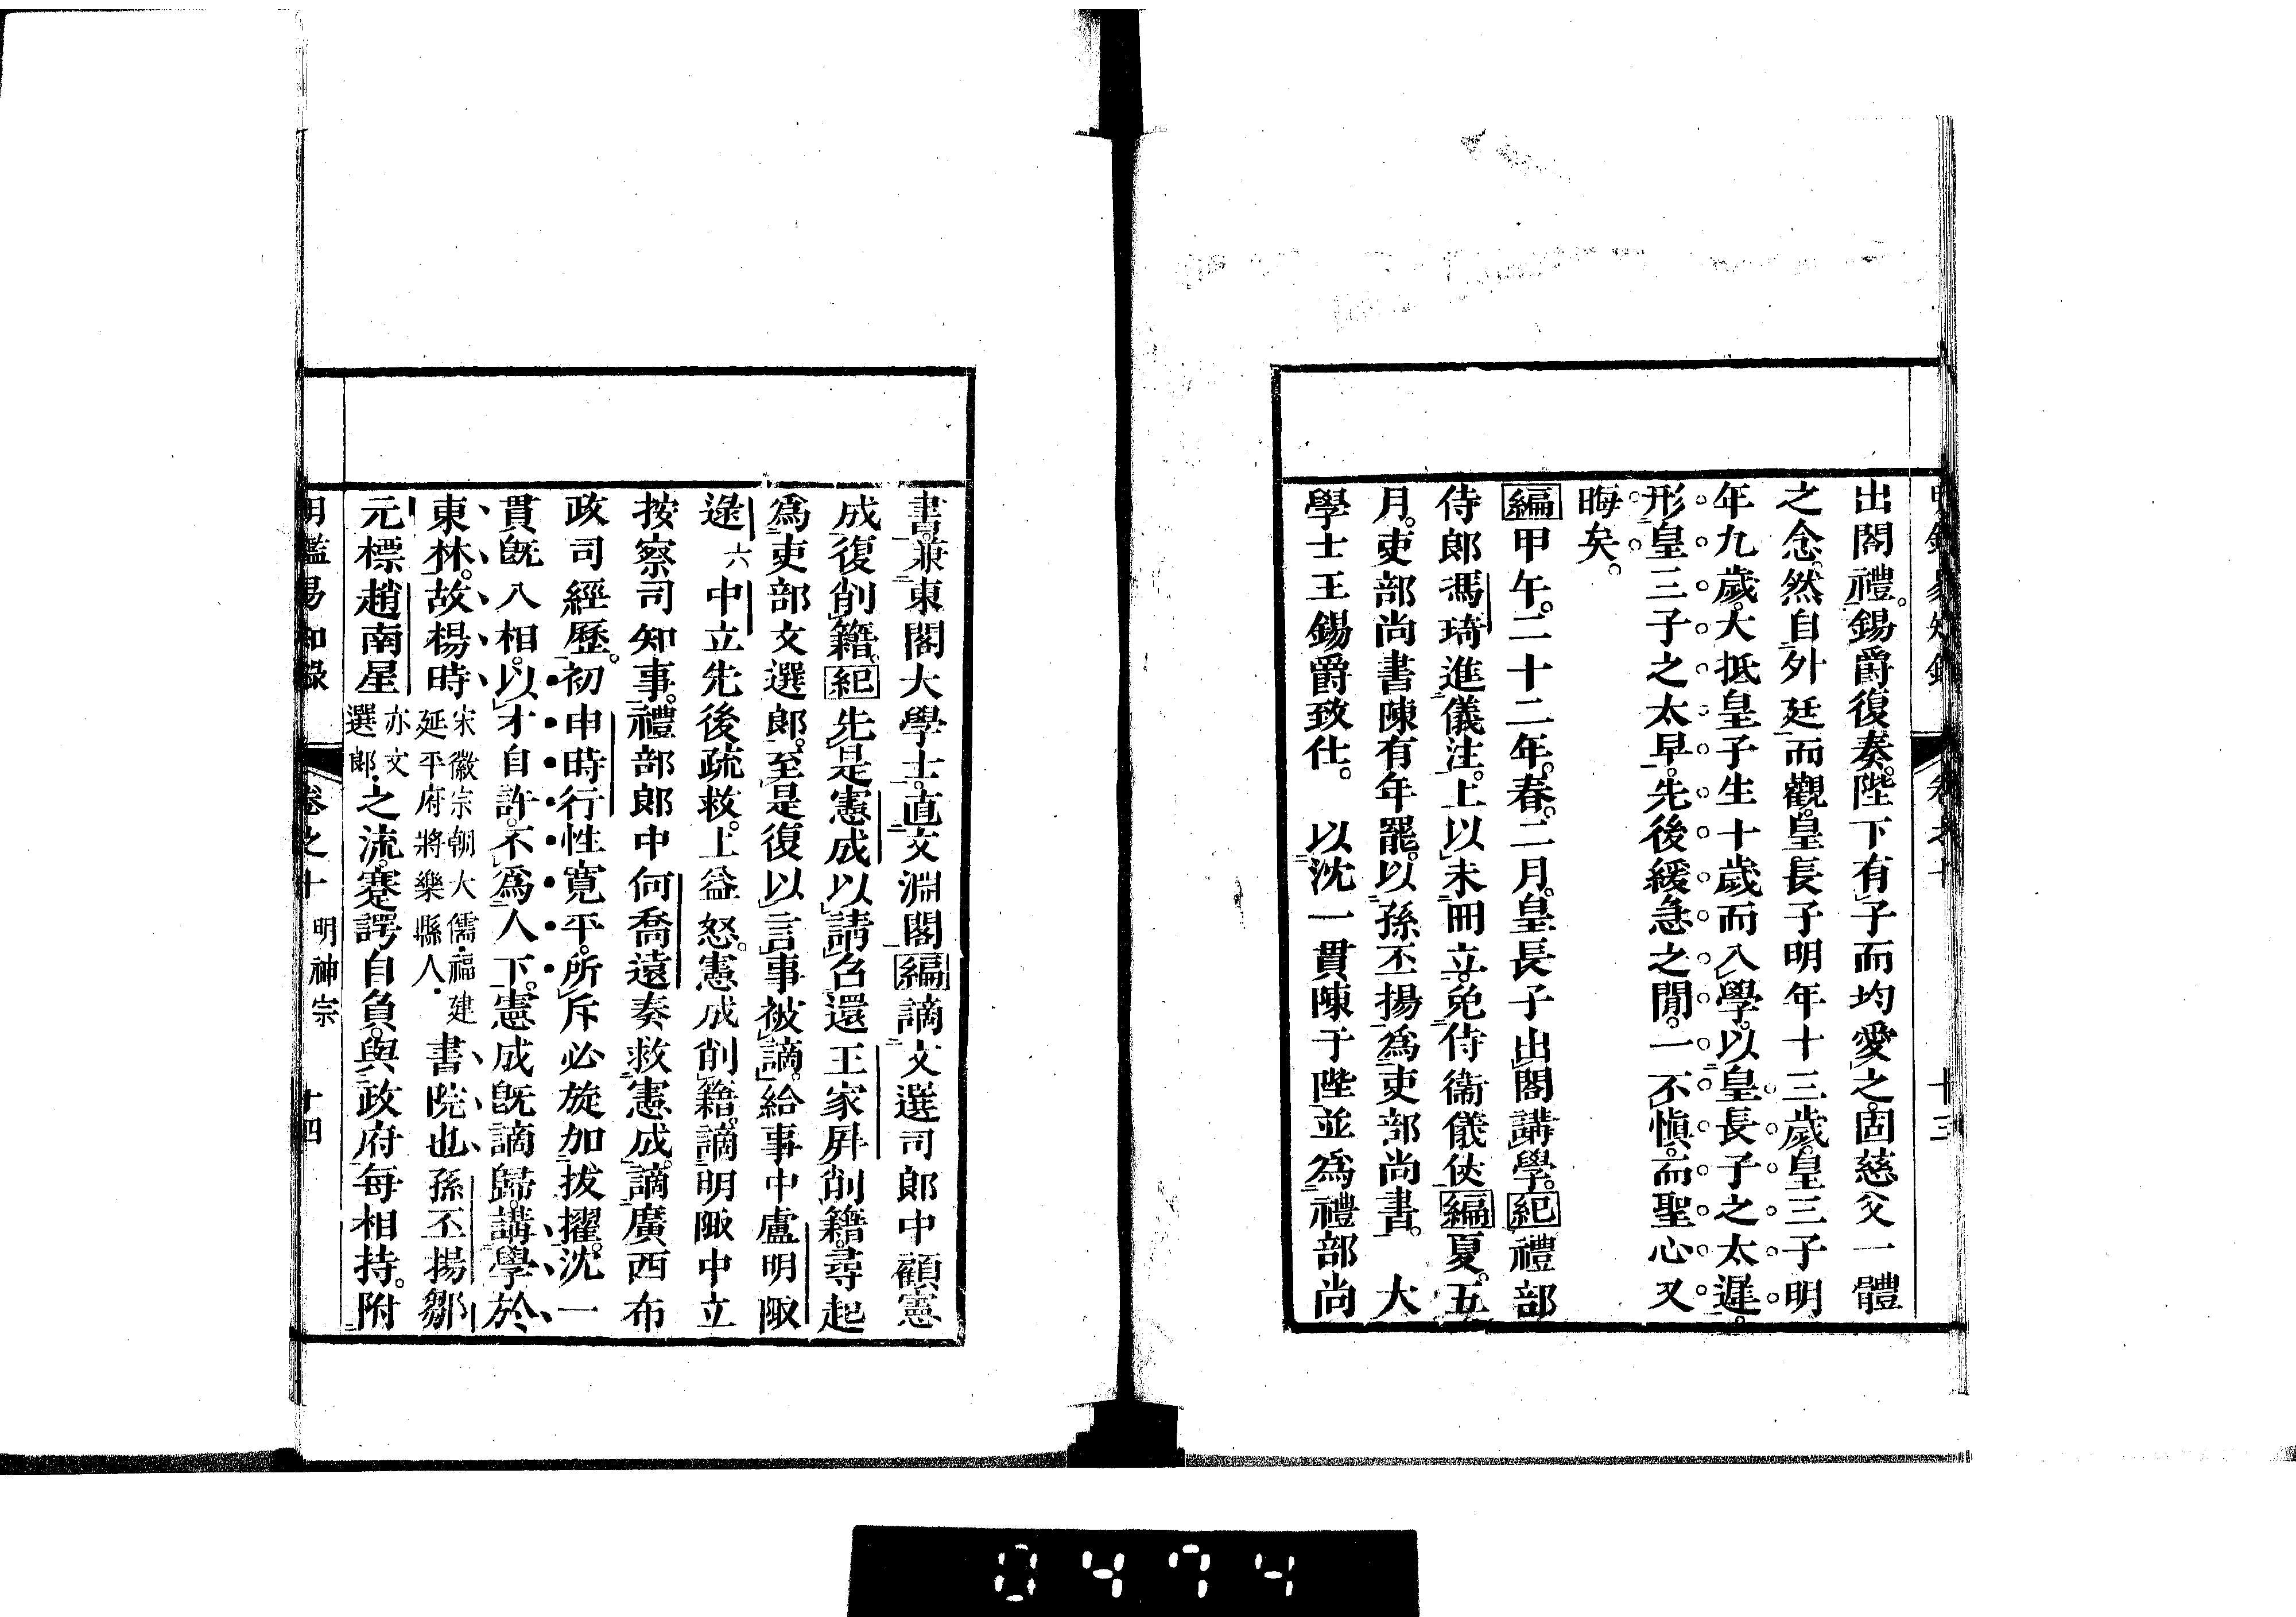 出閣禮。錫爵復奏。陛下有子而均愛之。固慈父一體
之念。然自外廷而觀。皇長子明年十三歲。皇三子明
年九歲。大抵皇子生十歲而入學。以皇長子之太遲。
形皇三子之太早。先後緩急之閒。一不愼。而聖心又
晦矣。
編甲午。二十二年。春。二月。皇長子出閣講學。紀禮部
侍郎馮琦進儀注。上以未冊立。免侍衞儀仗編夏。五
月。吏部尚書陳有年罷。以孫丕揚爲吏部尚書。 大
學士王錫爵致仕。 以沈一貫陳于陛並爲禮部尚
十三
書。兼東閣大學士。直文淵閣編謫文選司郎中顧憲
成復削籍。紀先是憲成以請召還王家屏削籍。尋起
爲吏部文選郎。至是復以言事被謫。給事中盧明陬
逯六中立先後疏救。上益怒。憲成削籍。謫明陬中立
按察司知事。禮部郎中何喬遠奏救憲成。謫廣西布
政司經歷。初申時行性寛平。所斥必旋加拔擢。沈一
貫旣入相。以才自許。不爲人下。憲成旣謫歸。講學於
東林。故楊時宋徽宗朝大儒・福建延平府將樂縣人・書院也孫丕揚鄒
元標趙南星亦文選郎・之流。蹇諤自負。與政府每相持。附
明鑑易知錄 卷之十 明神宗 十四
0474